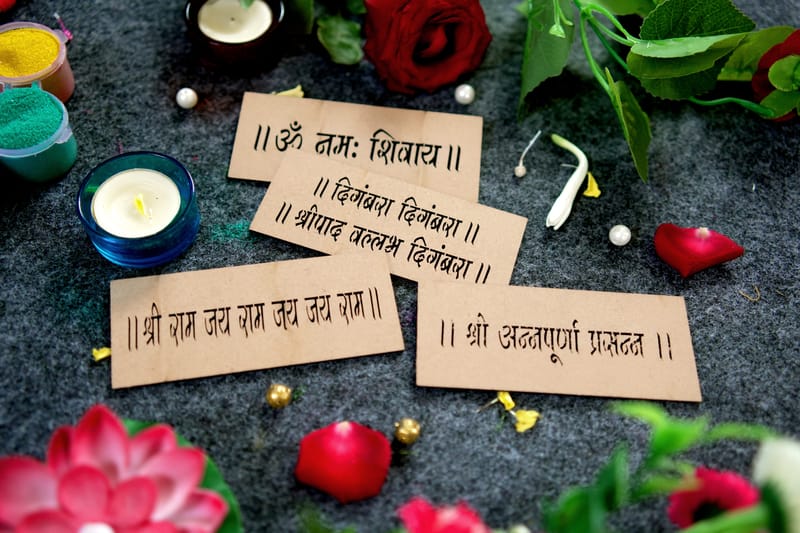 ॥ ॐ नमः शिवाय ॥
॥ दिगंबरा दिगंबरा ॥
॥ श्रीपाद वल्लभ दिगंबरा ॥
॥ श्री राम जय राम जय जय राम ॥
॥ श्री अन्नपूर्णा प्रसन्न ॥